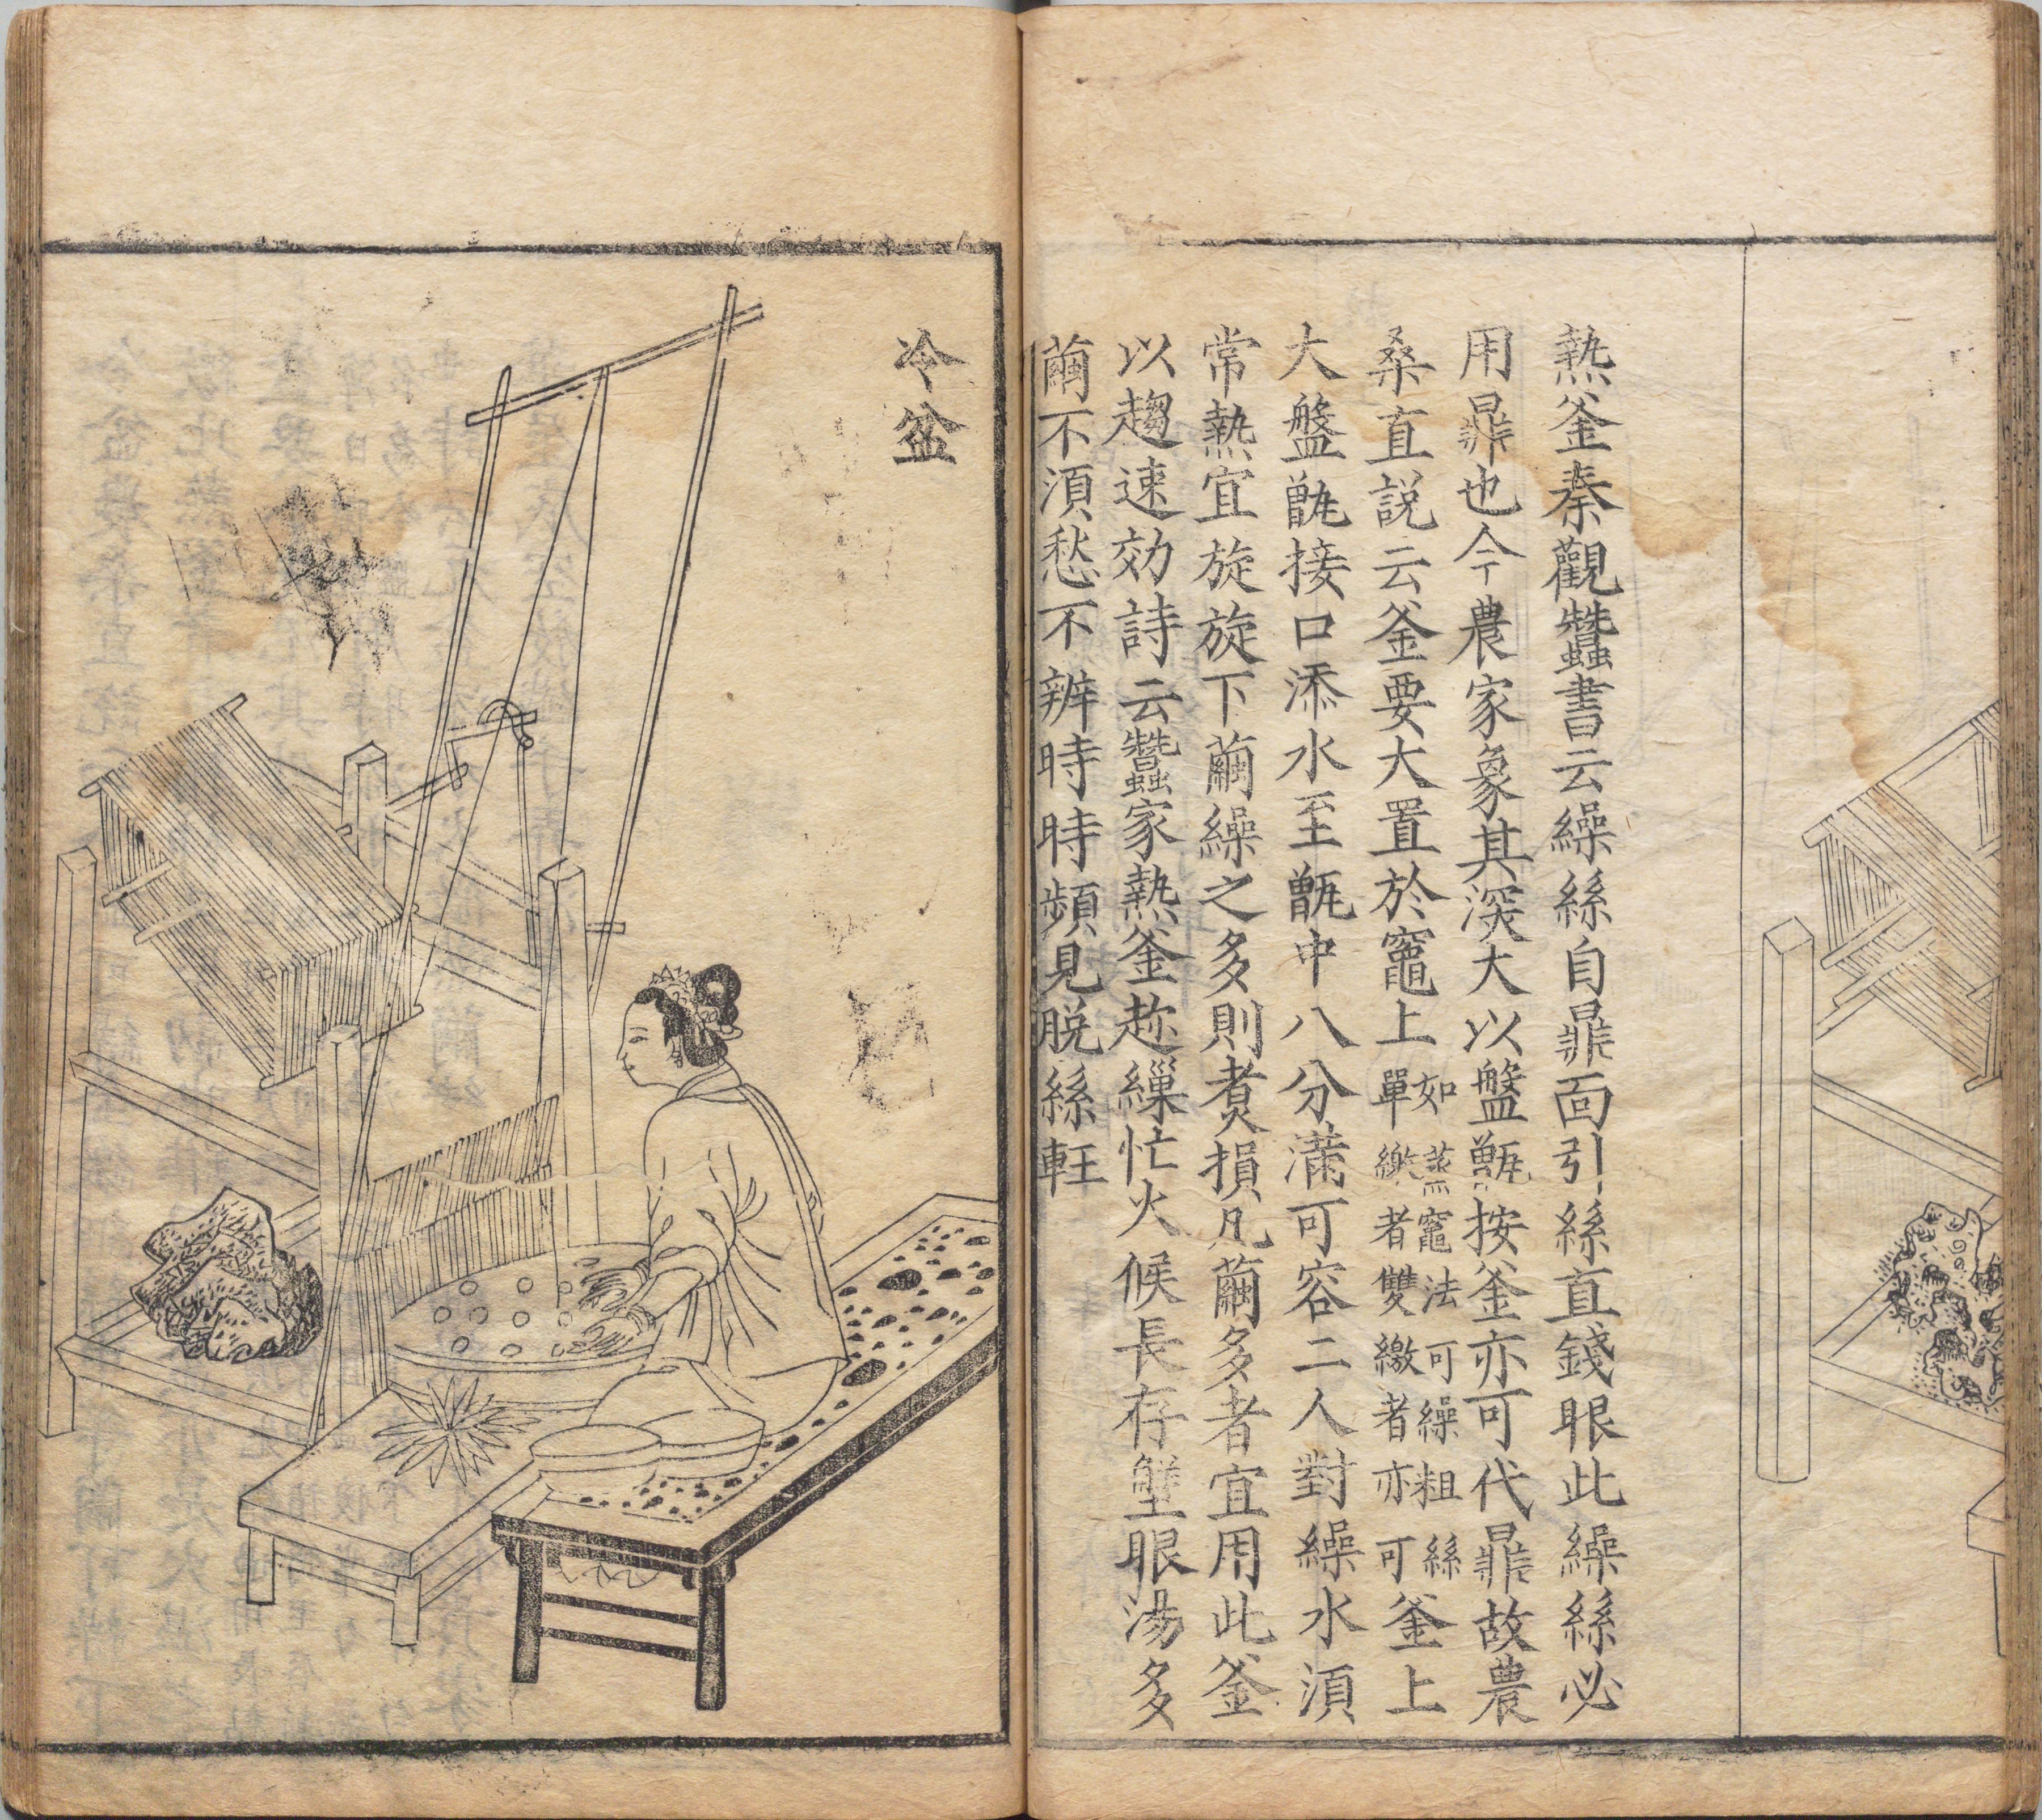 熱釜秦觀蠶書云繰絲自鼎面引絲直錢眼此繰絲必
用鼎也今農家象其深大以盤甑按釜亦可代鼎故農
桑直説云釜要大置於竈上
如蒸竈法可繰粗絲
單繳者雙繳者亦可
釜上
大盤甑接口添水至甑中八分滿可容二人對繰水湏
常熱宜旋旋下繭繰之多則煑損凡繭多者宜用此釜
以趨速効詩云蠶家熱釜趂繅忙火候長存蟹眼湯多
繭不湏愁不辨時時頻見脱絲軖
冷盆